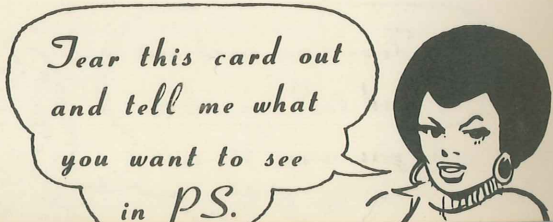 Tear this card out
and tell me what
you want to see
in PS.